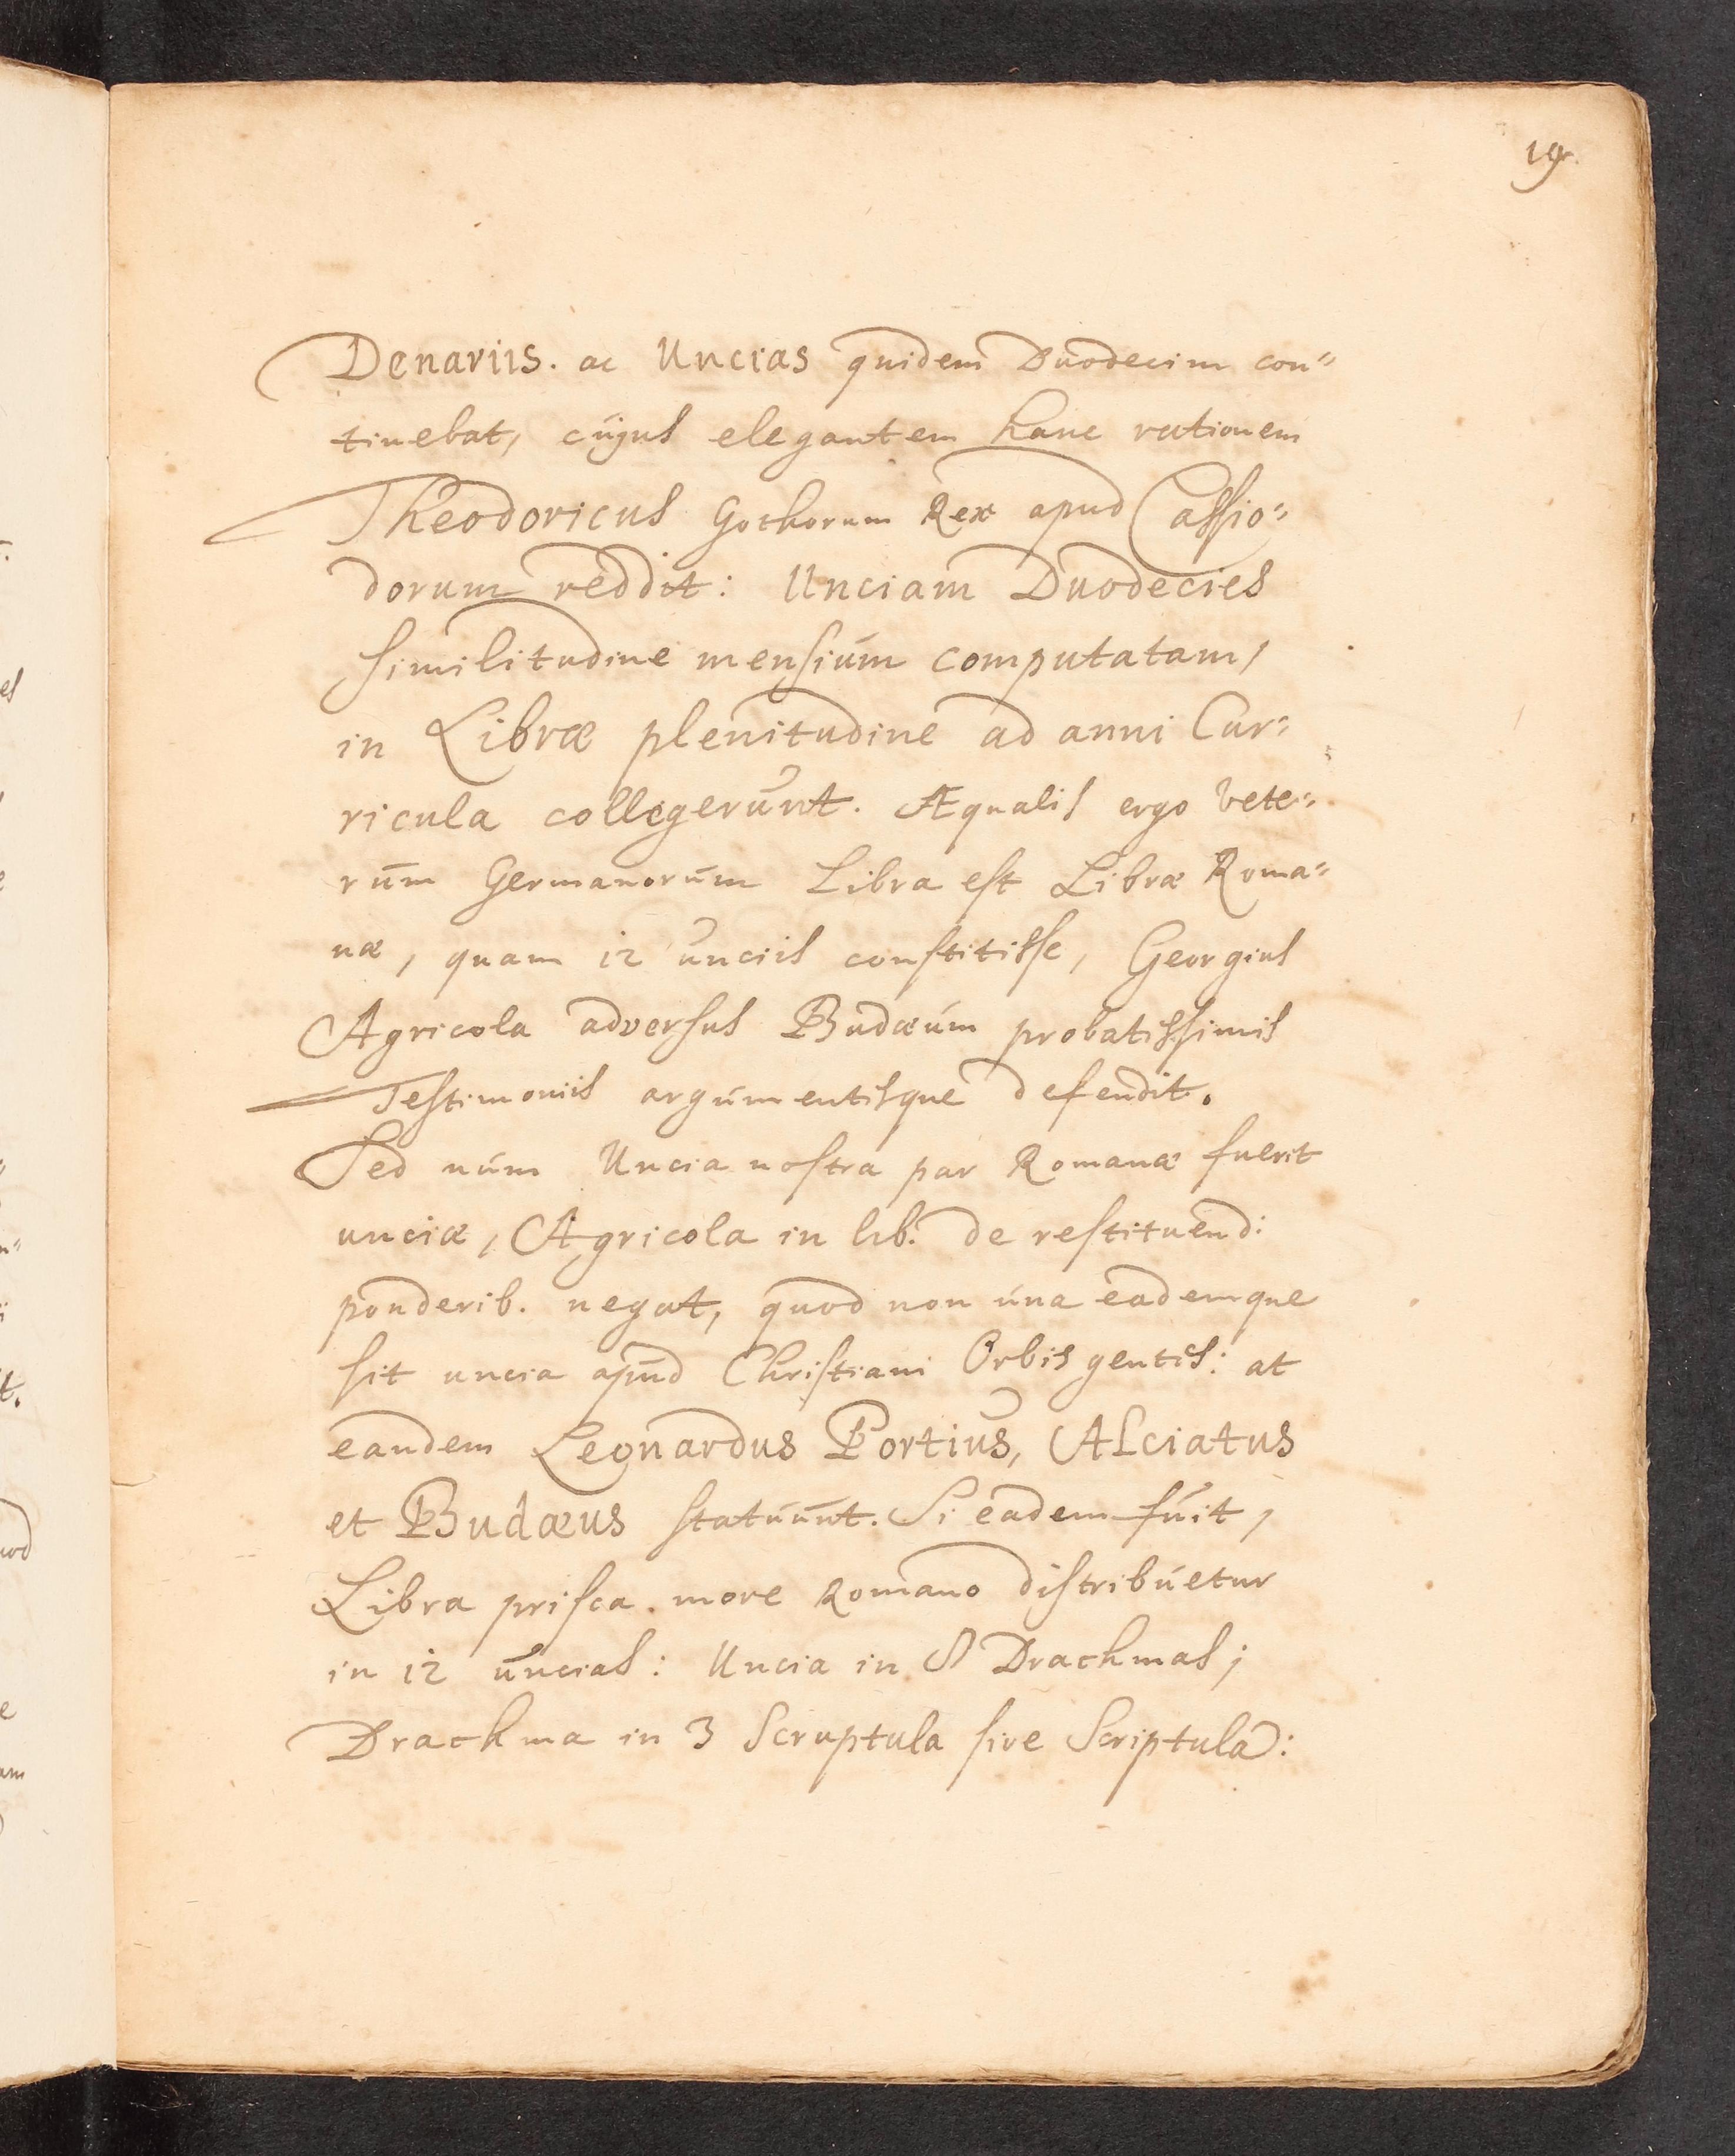 19.
Denariis. ac Uncias quidem Duodecim con=
tinebat, cujus elegantem hanc rationem
Theodoricus Gothorum Rex apud Cassio=
dorum reddit: Unciam Duodecies
similitudine mensium computatam,
in Libræ plenitudine ad anni Cur=
ricula collegerunt. Æqualis ergo vete=
rum Germanorum Libra est Libræ Roma=
næ, quam 12 unciis constitisse, Georgius
Agricola adversus Budæum probatissimis
Testimoniis argumentisque defendit.
Sed num Uncia nostra par Romanæ fuerit
unciæ, Agricola in lib. de restituend:
ponderib. negat, quod non una eademque
sit uncia apud Christiani Orbis gentes: at
eandem Leonardus Portius, Alciatus
et Budæus statuunt. Si eadem fuit,
Libra prisca. more Romano distribuetur
in 12 uncias: Uncia in 8 Drachmas;
Drachma in 3 Scruptula sive Scriptula: